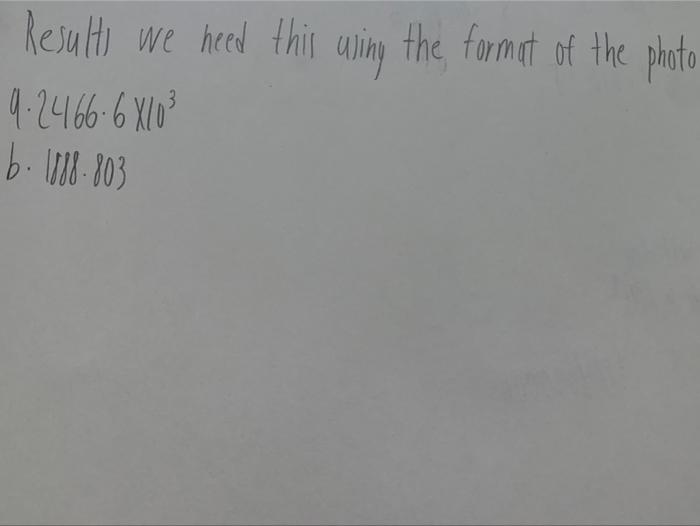 Results we need this using the format of the photo
a. 2466.6 X10³
b. 1888.803